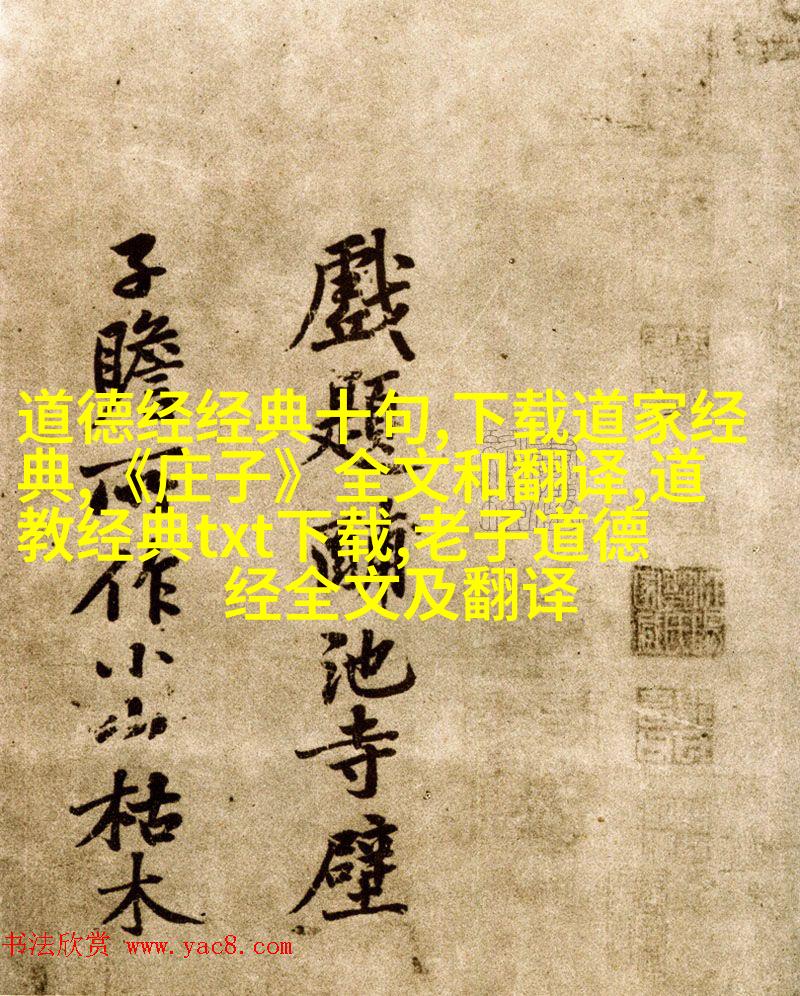 戲題池寺壁
子瞻所作小山枯木
道德经经典十句,下载道家经
典,《庄子》全文和翻译,道
教经典txt下载,老子道德
经全文及翻译
书法欣赏 www.yac8.com